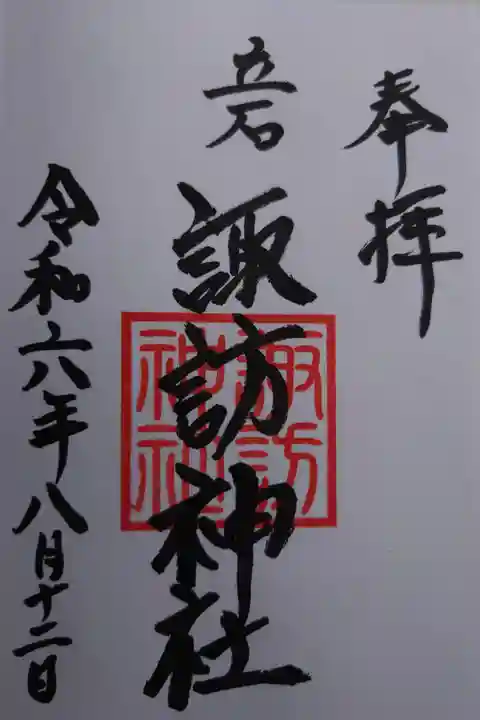 奉拝
立石
諏訪神社
諏訪
神社
令和六年八月十二日